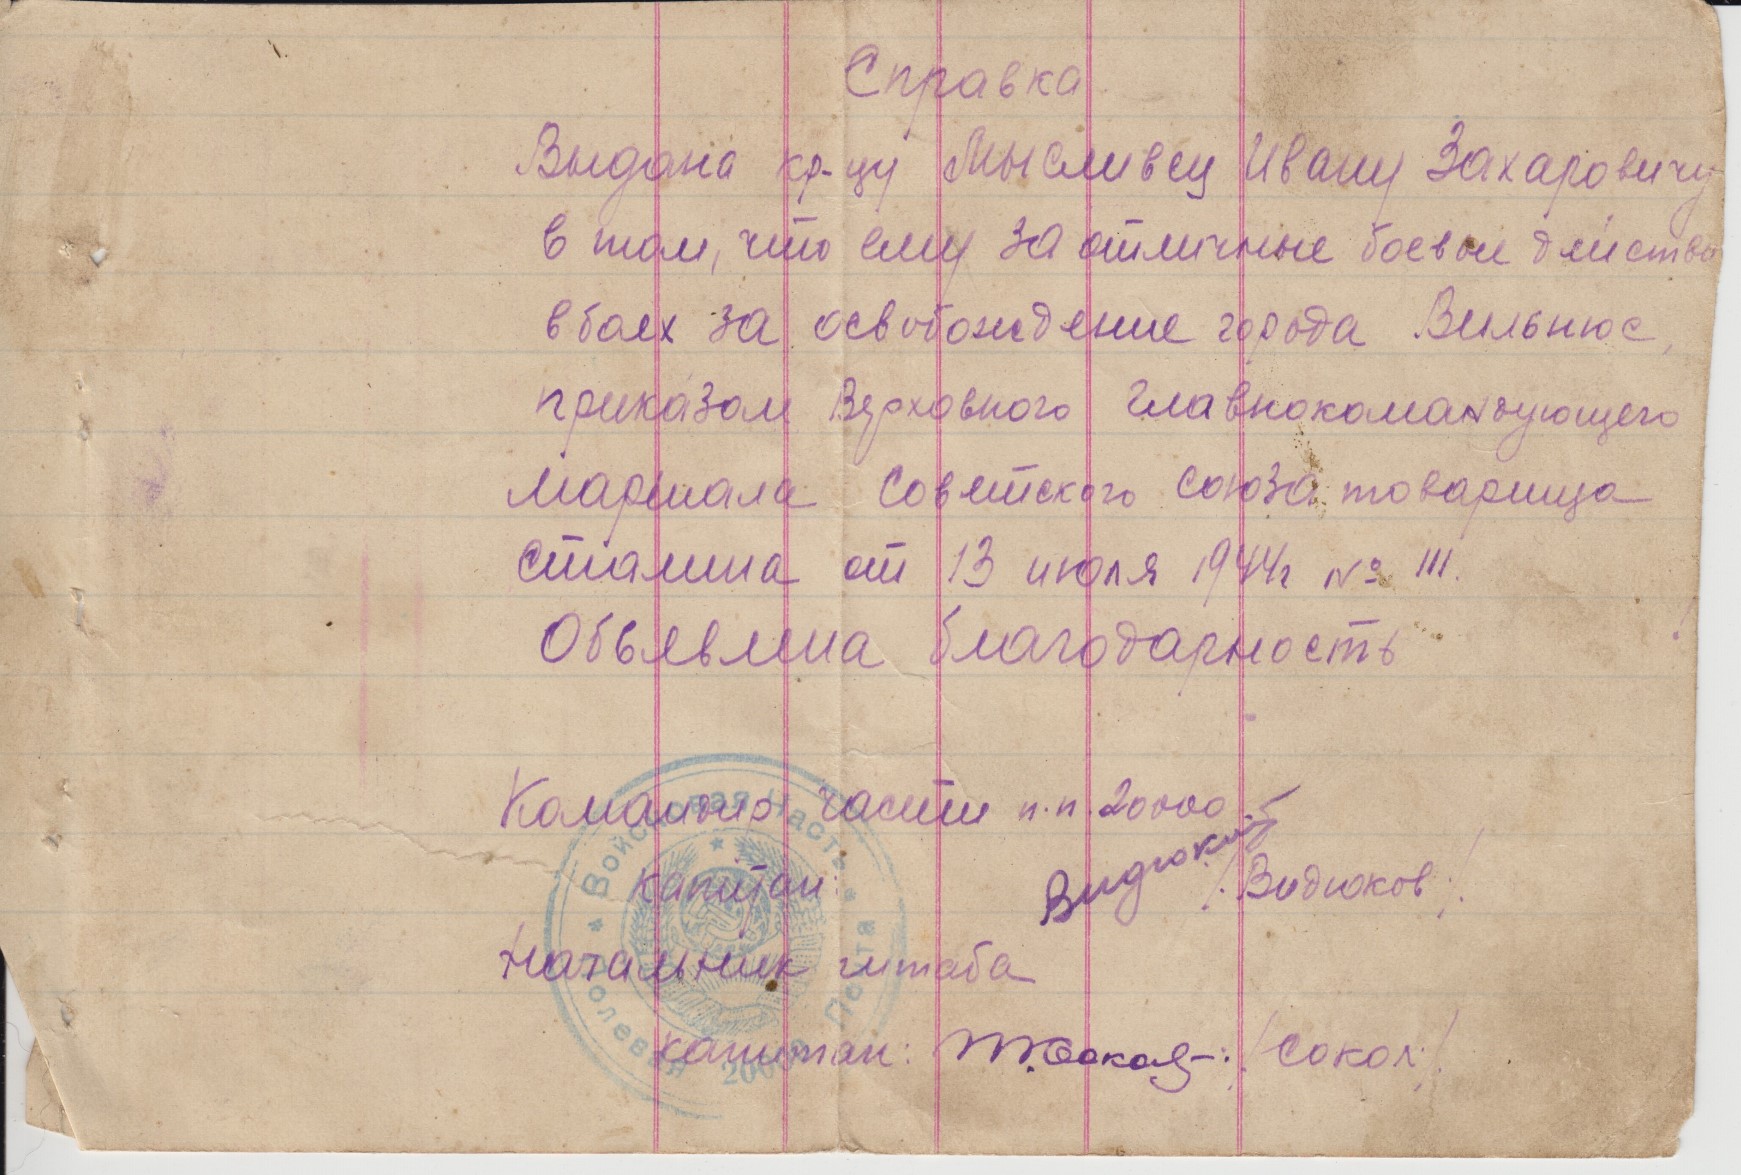 Справка
Выдана кр-цу Мысливец Ивану Захаровичу
в том, что ему за отличные боевые действа
в боях за освобождение города Вильнюс,
приказом Верховного Главнокомандующего
маршала Советского Союза товарища
Сталина от 13 июля 1944г № 111.
Объявлена благодарность
Командир части п.п. 20000
капитан: Видюков /Видюков/
Начальник штаба
капитан: Сокол /Сокол/
Войсковая Часть * Полевая Почта * 20000